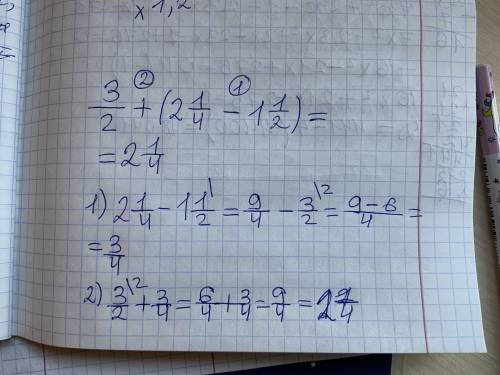 x 1,2
② ①
3/2 + (2 1/4 - 1 1/2) =
= 2 1/4
1) 2 1/4 - 1 1/2 = 9/4 - 3/2 \2 = 9-6/4 =
= 3/4
2) 3/2 \2 + 3/4 = 6/4 + 3/4 = 9/4 = 2 1/4